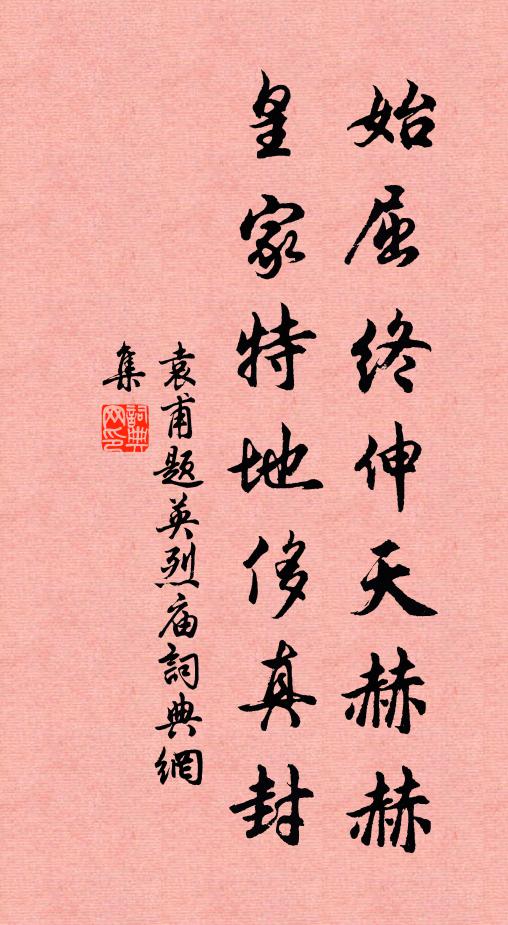 始屈终伸天赫赫
皇家特地侈真封
袁甫题英烈庙詞典網
集
詞典
网印